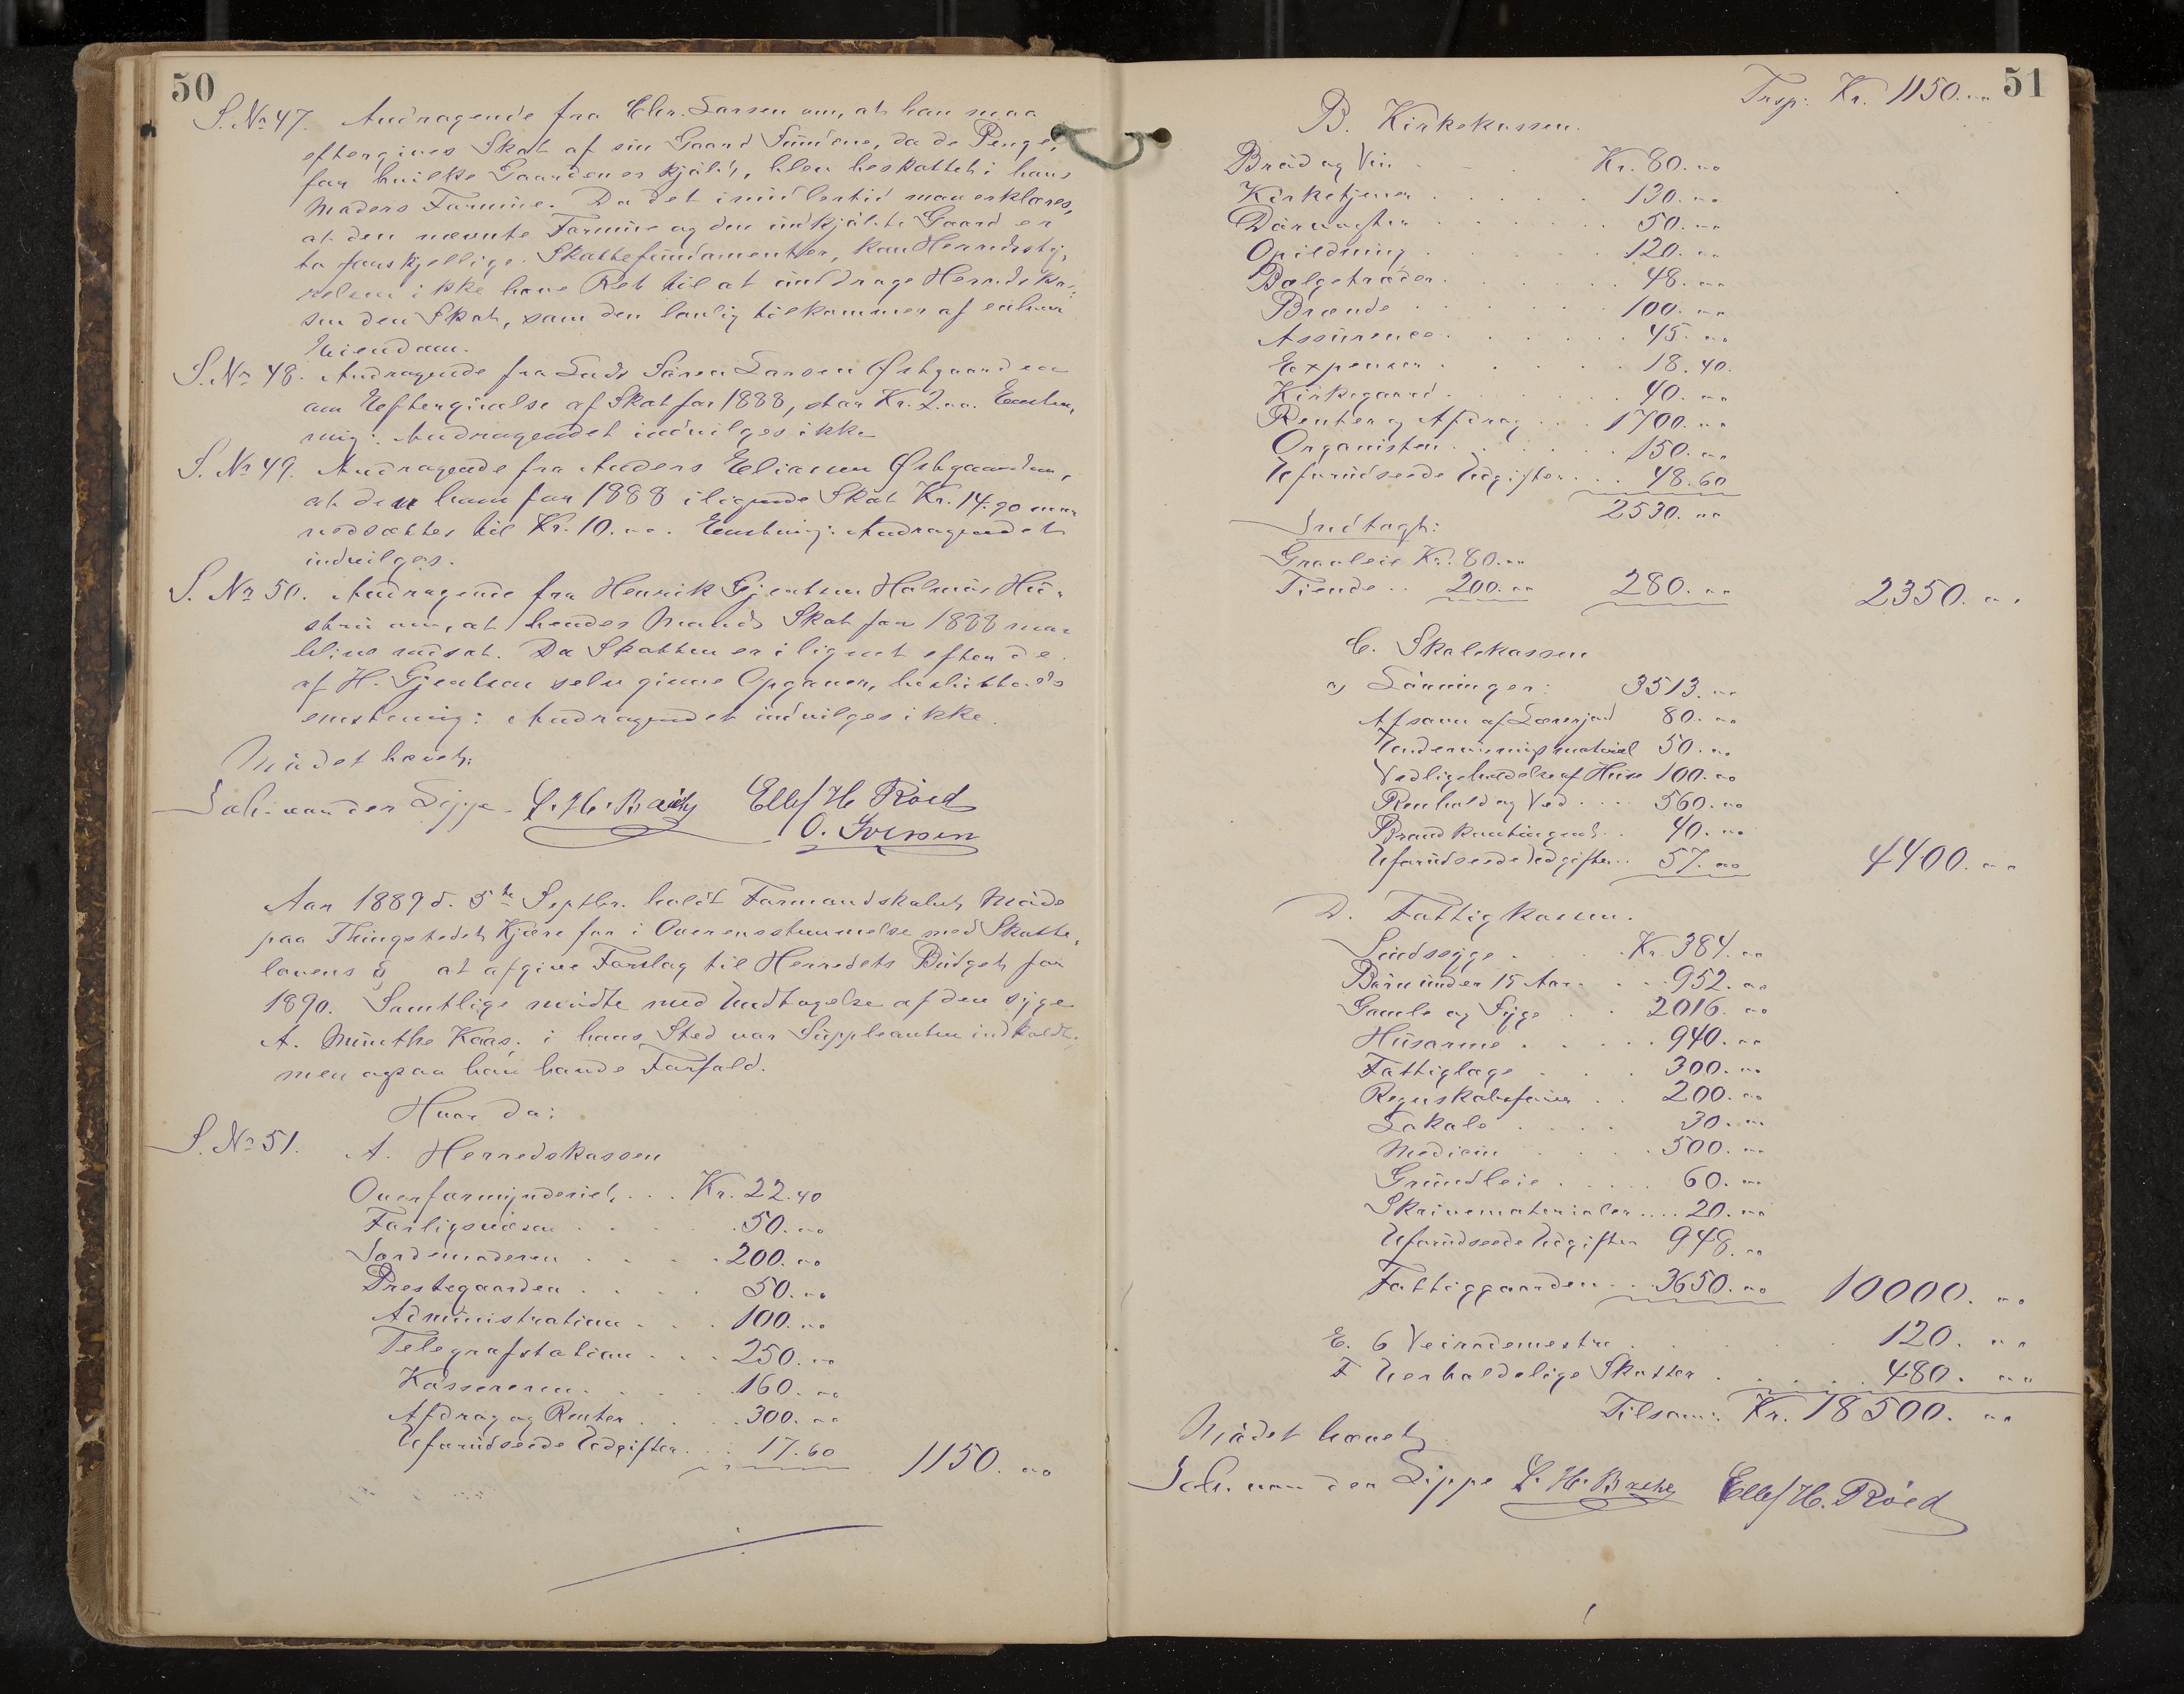 50
S. No 47. Andragende fra Chr. Larsen om, at han maa
eftergives Skat af sin Gaard Sundene, da de Penge,
for hvilke Gaarden er kjøbt, blev beskattet i hans
Moders Formue. Da det imidlertid maa erklæres,
at den nævnte Formue og den indkjøbte Gaard er
to forskjellige Skattefundamenter, kan Herredssty-
relsen ikke have Ret til at unddrage Herredskas-
sen den Skat, som den lovlig tilkommer af enhver
Eiendom.
S. No 48. Andragende fra Lads Søren Larsen Østgaarden
om Eftergivelse af Skat for 1888, stor Kr. 2.00. Enstem-
mig: Andragendet indvilges ikke
S. No 49. Andragende fra Anders Eliassen Østgaarden,
at den ham for 1888 ilignede Skat Kr. 14.90 maa
nedsættes til Kr. 10.00. Enstemmig: Andragendet
indvilges.
S. No 50. Andragende fra Henrik Gjertsen Holmens Hu-
stru om, at hendes Mands Skat for 1888 maa
blive nedsat. Da Skatten er ilignet efter de
af H. Gjertsen selv givne Opgaver, besluttedes
enstemmig: Andragendet indvilges ikke.
Mödet hævet.
Joh. van der Lippe. L. H. Bache Ellef H. Röed
O. Iversen
Aar 1889 d. 5te Septbr. holdt Formandskabet Möde
paa Thingstedet Kjære for i Overensstemmelse med Skatte-
lovens § at afgive Forslag til Herredets Budget for
1890. Samtlige mödte med Undtagelse af den syge
A. Munthe Kaas; i hans Sted var Suppleanten indkaldt,
men ogsaa han havde Forfald.
Hvor da:
S. No 51. A. Herredskassen
Overformynderiet . . . Kr. 22.40
Forligsvæsen . . . . . 50.00
Jordemoderen . . . . 200.00
Prestegaarden . . . . 50.00
Administration . . . 100.00
Telegrafstation . . . 250.00
Kassereren . . . . . 160.00
Afdrag og Renter . . . . 300.00
Uforudseede Udgifter . . 17.60 1150.00
51
Trsp: Kr. 1150.00
B. Kirkekassen.
Bröd og Vin . . . Kr. 80.00
Kirketjener . . . . . 130.00
Dörvogter . . . . . . 50.00
Opildning . . . . . 120.00
Bælgetræder . . . . . 48.00
Brænde . . . . . . 100.00
Assurence . . . . . . 45.00
Expenser . . . . . 18.40
Kirkegaard . . . . . . 40.00
Renter og Afdrag . . . 1700.00
Organisten . . . . . . 150.00
Uforudseede Udgifter . . . 48.60
2530.00
Indtægt:
Gravleie Kr. 80.00
Tiende .. 200.00 280.00 2350.00
C. Skolekassen
a) Lönninger: 3513.00
Afsavn af Lærerjord 80.00
Undervisningsmateriel 50.00
Vedligeholdelse af Huse 100.00
Renhold og Ved . . . . 560.00
Brandkontingent . . 40.00
Uforudseede Udgifter . . 57.00 4400.00
D. Fattigkassen.
Sindssyge . . . . Kr. 384.00
Börn under 15 Aar . . . 952.00
Gamle og Syge . . 2016.00
Husarme . . . . . 940.00
Fattiglæge . . . . 300.00
Regnskabsförer . . 200.00
Lokale . . . . 30.00
Medicin . . . . 500.00
Grundleie . . . . . 60.00
Skrivematerialer .... 20.00
Uforudseede Udgifter 948.00
Fattiggaarden . . . 3650.00 10000.00
E. 6 Veirodemestre . . . . . . 120.00
F Uerholdelige Skatter . . . . . 480.00
Tilsam: Kr. 18500.00
Mödet hævet
Joh. van der Lippe L. H. Bache Ellef H. Röed